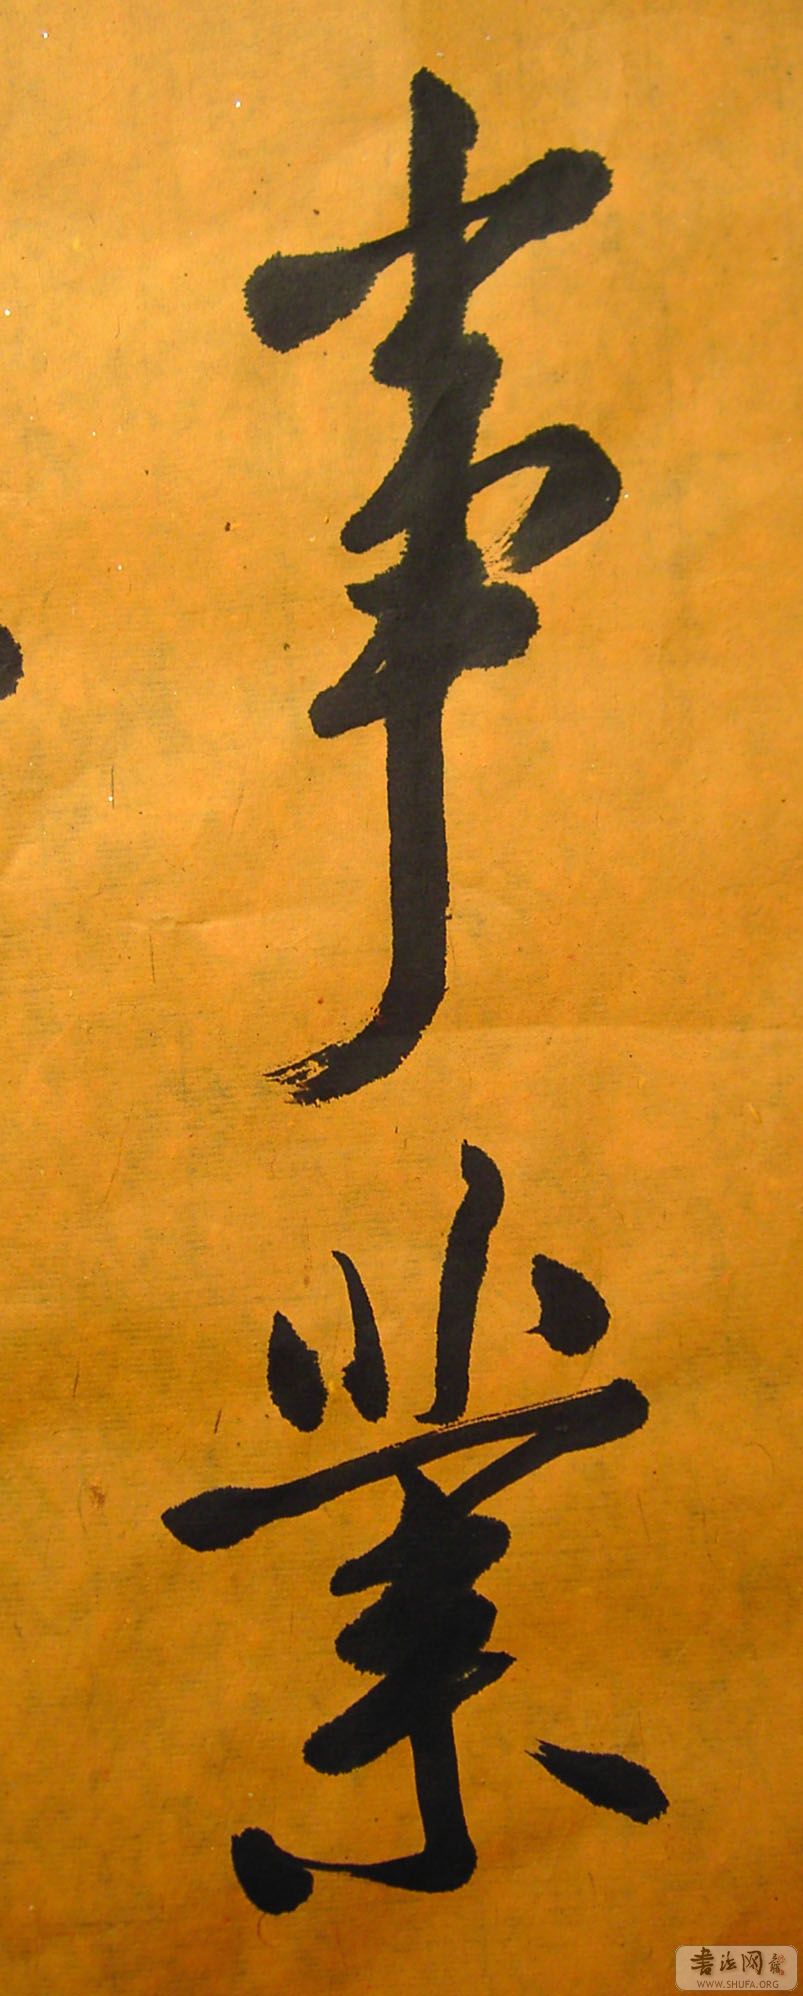 事業
书法网
WWW.SHUFA.ORG